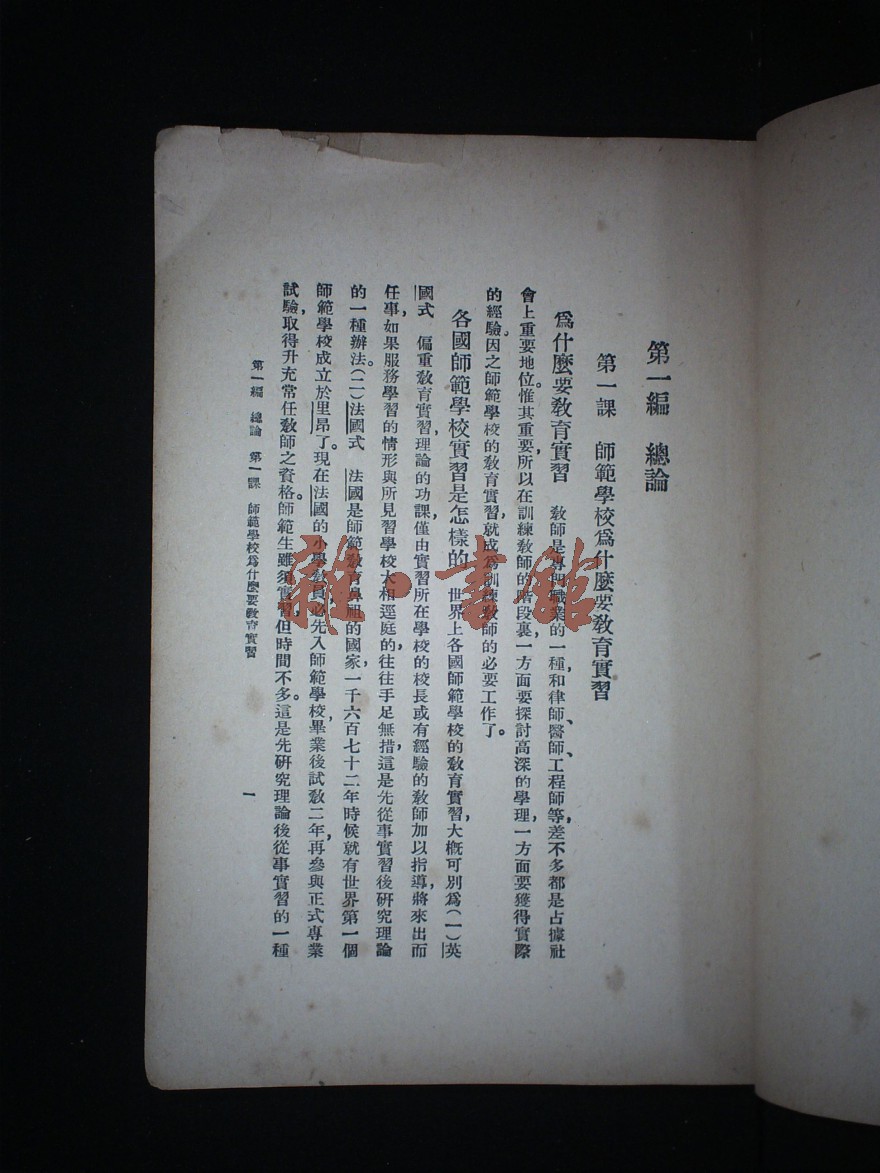 第一編　總論
第一課　師範學校爲什麼要敎育實習
爲什麼要敎育實習　敎師是專門職業的一種，和律師、醫師、工程師等，差不多都是占據社
會上重要地位。惟其重要所以在訓練敎師的階段裏，一方面要探討高深的學理，一方面要獲得實際
的經驗。因之師範學校的敎育實習，就成爲訓練敎師的必要工作了。
各國師範學校實習是怎樣的　世界上各國師範學校的敎育實習，大槪可別爲（一）英
國式　偏重敎育實習，理論的功課，僅由實習所在學校的校長或有經驗的敎師加以指導，將來出而
任事，如果服務學習的情形與所見習學校大相逕庭的，往往手足無措，這是先從事實習後硏究理論
的一種辦法。（二）法國式　法國是師範敎育鼻祖的國家，一千六百七十二年時候就有世界第一個
師範學校成立於里昂了。現在法國的小學敎員，必先入師範學校，畢業後試敎二年，再參與正式專業
試驗，取得升充常任敎師之資格。師範生雖須實習，但時間不多。這是先硏究理論後從事實習的一種
第一編　總論　第一課　師範學校爲什麼要敎育實習
一
雜·書館